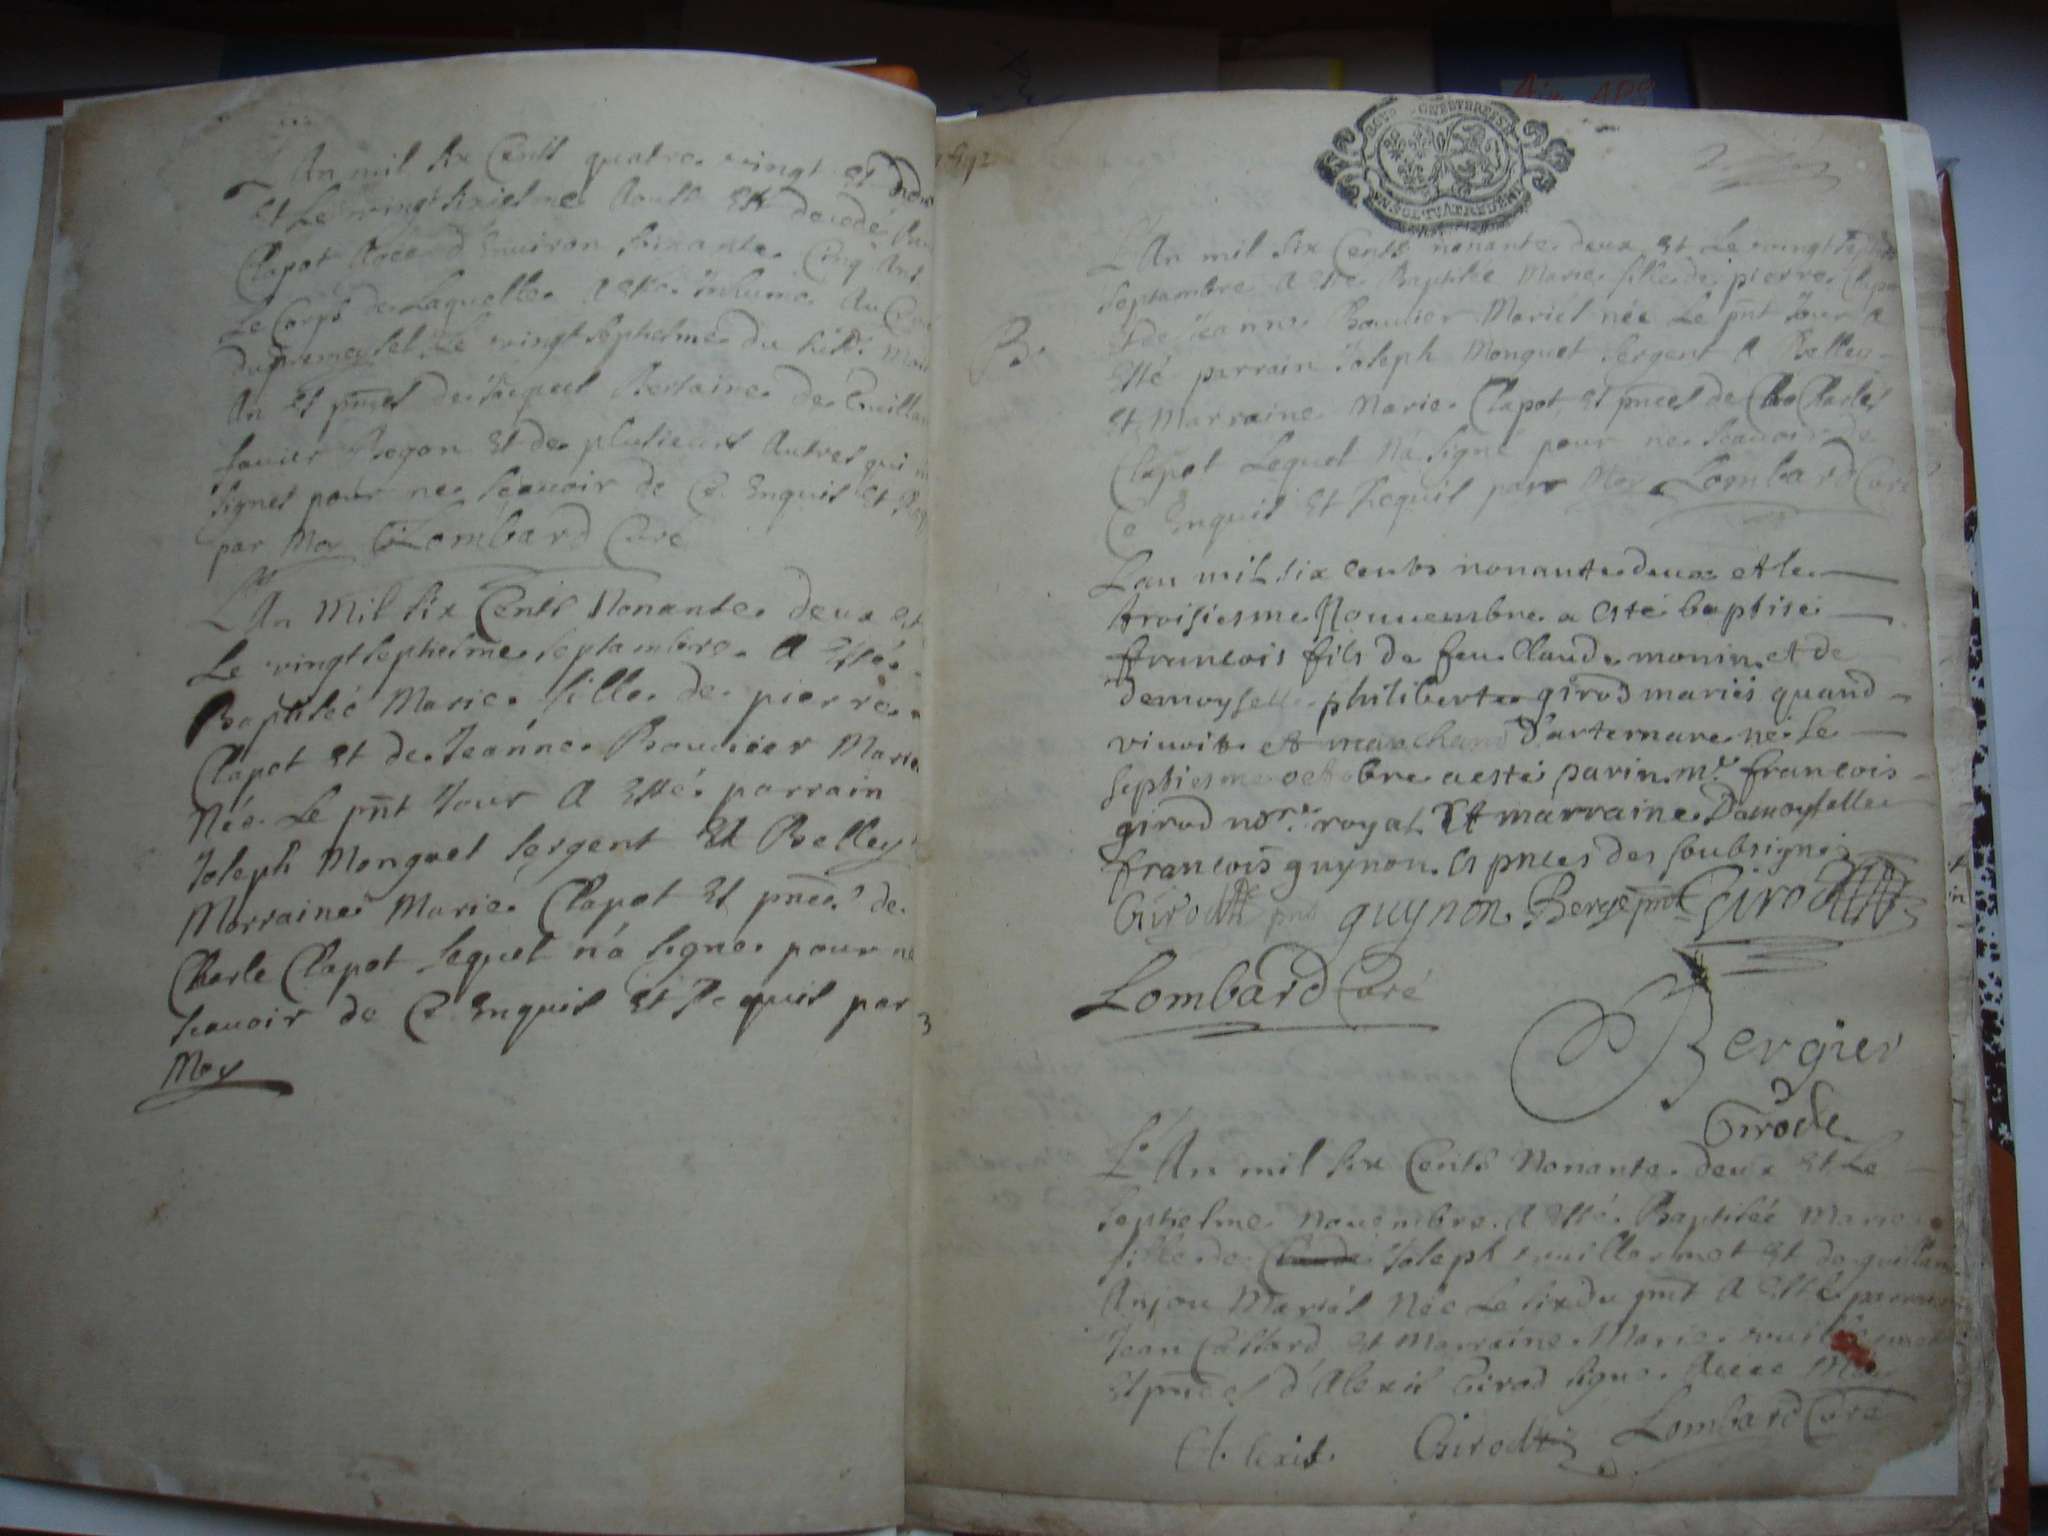 L'An mil six Cents quatre vingt et
Et Le vingt sixiesme Aoust Est decedé
Clapot Agee d'Environ soixante Cinq Ans
Le Corps de Laquelle A esté Inhumé Au
Le vingtsephesme du susd. Mois
An Et pñces de Jacques de
Et de plusieurs Autres qui
signes pour ne scauoir de Ce Enquis Et
par Moy Lombard Curé
L'An Mil six Cents Nonante deux et
Le vingtsephesme septambre A Esté
Baptiseé Marie fille de pierre
Clapot et de Jeanne Bouuier Marie
Née Le pñt Jour A Esté parrain
Joseph Monguet sergent Et Belley
Marraine Marie Clapot Et pñce de
Charle Clapot lequel n'a signe pour ne
scauoir de Ce Enquis Et Requis par
Moy
1692
L'An mil six Cents nonante deux Et Le vingtsephe
septambre A Este Baptisée Marie fille de pierre Clapo
Et de Jeanne Bouuier Mariés née Le pñt Jour A
Esté parrain Joseph Monguet sergent A Belley
B.
Et Marraine Marie Clapot Et pñces de Charles
Clapot Lequel Na signé pour ne scauoir de
Ce Enquis Et Requis parr Moy Lombard Curé
Lan mil six cents nonante deux et le
troisiesme Nouuembre a esté baptisé
francois fils de feu Claude monin et de
demoyselle philiberte girod mariés quand
viuoit et marchand d'arternare né le
septiesme octobre a esté parin mr francois
girod nore royal Et marraine Damoyselle
francois guynon Es pnces des soubsignes
Girodt pnt guynon Berge pnt Girod
Lombard Curé
Bergier
Girode
L'An mil six Cents Nonante deux Et Le
sephesme nouembre A Esté Baptiseé Marie
fille de Claude Joseph vuillermet Et de
Anjou Mariés Née Le six du pnt A Esté parrain
Jean Et Marraine Marie vuillermet
Et pñces d'Alexis Girod signe Auec Moy
Alexis Girodt Lombard Curé